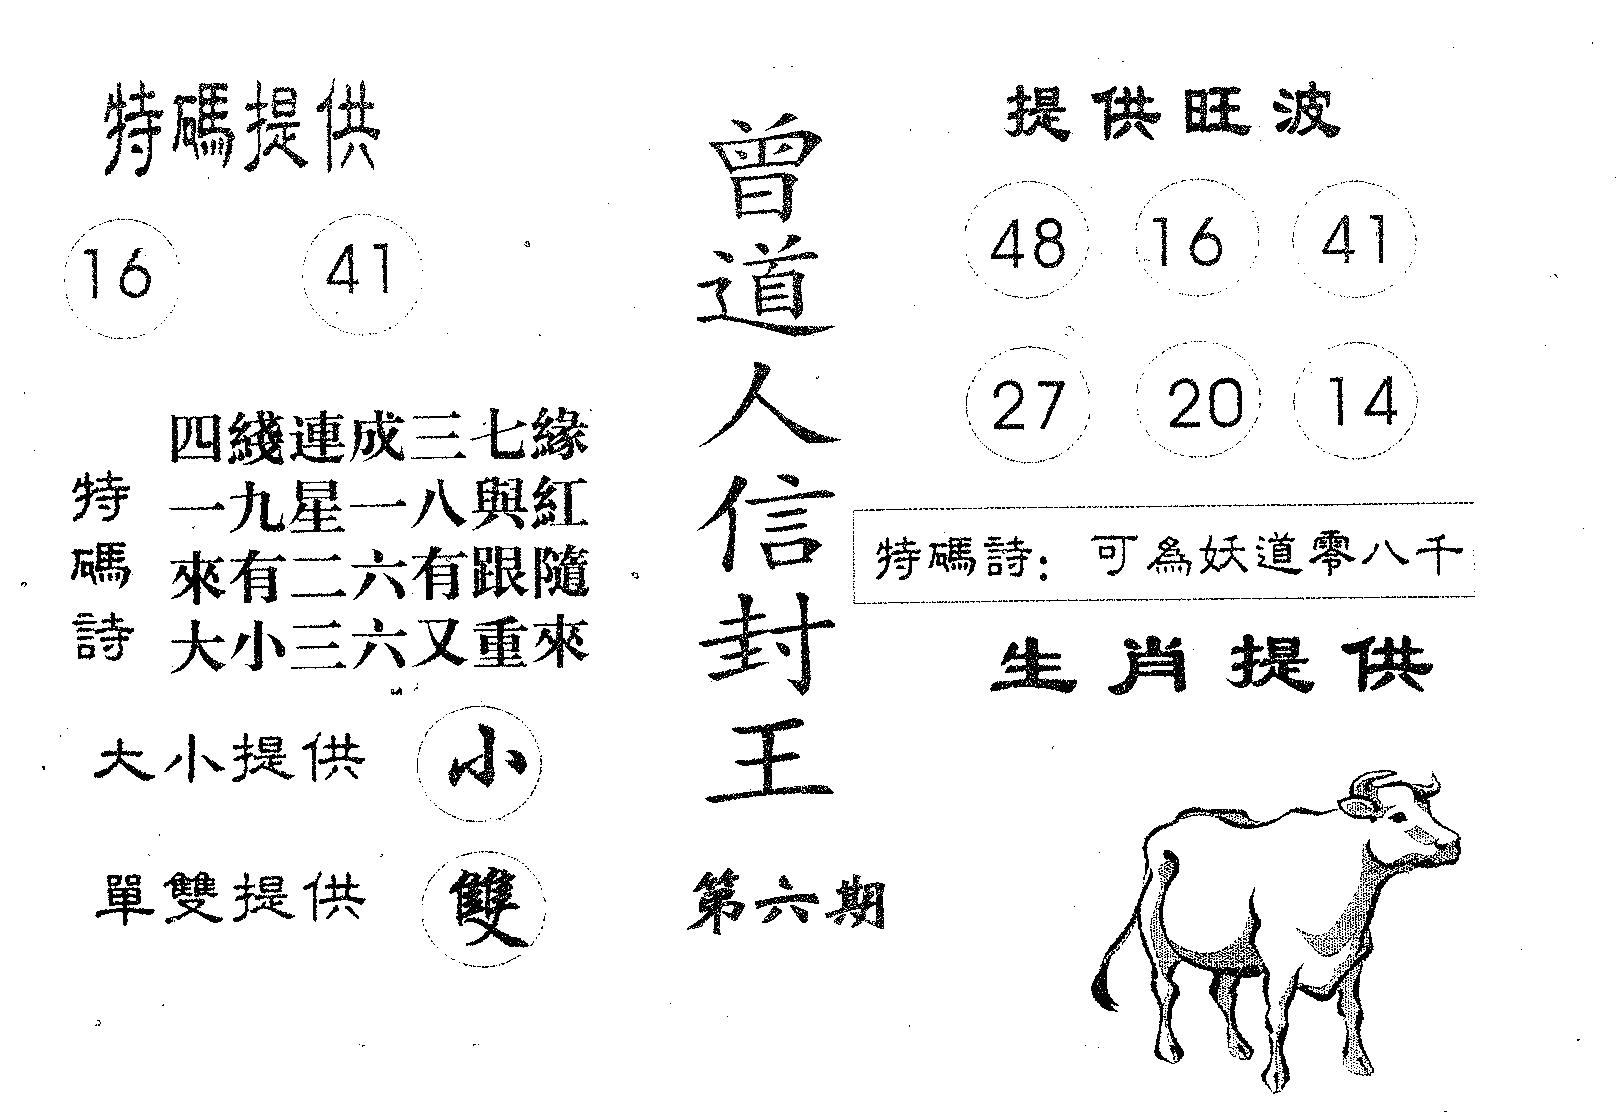 特碼提供
16 41
特碼詩
四綫連成三七緣
一九星一八與紅
來有二六有跟隨
大小三六又重來
大小提供 小
單雙提供 雙
曾道人信封王
第六期
提供旺波
48 16 41
27 20 14
特碼詩：可為妖道零八千
生肖提供